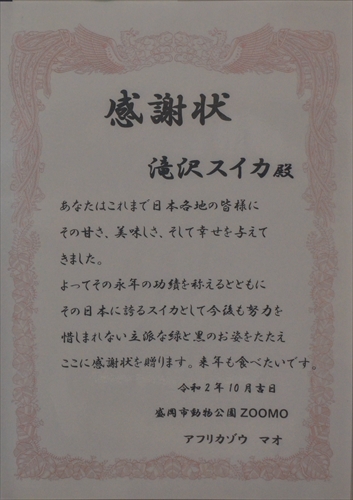 感謝状
滝沢スイカ殿
あなたはこれまで日本各地の皆様に
その甘さ、美味しさ、そして幸せを与えて
きました。
よってその永年の功績を称えるとともに
その日本に誇るスイカとして今後も努力を
惜しまれない立派な緑と黒のお姿をたたえ
ここに感謝状を贈ります。来年も食べたいです。
令和2年10月吉日
盛岡市動物公園ZOOMO
アフリカゾウ マオ